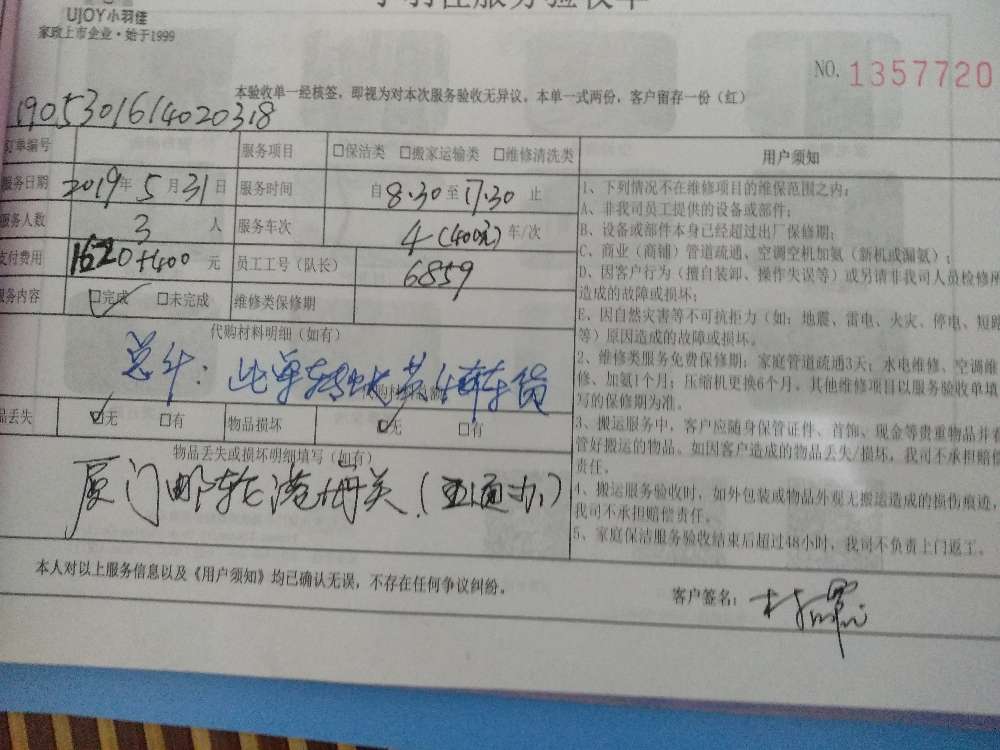 UJOY小羽佳
家政上市企业·始于1999
小羽佳服务验收单
NO. 1357720
本验收单一经核签，即视为对本次服务验收无异议，本单一式两份，客户留存一份（红）
1905301614020318
订单编号 服务项目 □保洁类 □搬家运输类 □维修清洗类
服务日期 2019年5月31日 服务时间 自8:30至17:30止
服务人数 3人 服务车次 4(400元)车/次
支付费用 1620+400元 员工工号（队长） 6859
服务内容 ☑完成 □未完成 维修类保修期
代购材料明细（如有）
总计：此单转
车货
品丢失 ☑无 □有 物品损坏 ☑无 □有
物品丢失或损坏明细填写（如有）
厦门邮轮港海关（
通办）
用户须知
1、下列情况不在维修项目的维保范围之内：
A、非我司员工提供的设备或部件；
B、设备或部件本身已经超过出厂保修期；
C、商业（商铺）管道疏通、空调空机加氨（新机或漏氨）；
D、因客户行为（擅自装卸、操作失误等）或另请非我司人员检修所
造成的故障或损坏；
E、因自然灾害等不可抗拒力（如：地震、雷电、火灾、停电、短路
等）原因造成的故障或损坏。
2、维修类服务免费保修期：家庭管道疏通3天；水电维修、空调维
修、加氨1个月；压缩机更换6个月。其他维修项目以服务验收单填
写的保修期为准。
3、搬运服务中，客户应随身保管证件、首饰、现金等贵重物品并看
管好搬运的物品。如因客户造成的物品丢失/损坏，我司不承担赔偿
责任。
4、搬运服务验收时，如外包装或物品外观无搬运造成的损伤痕迹，
我司不承担赔偿责任。
5、家庭保洁服务验收结束后超过48小时，我司不负责上门返工。
本人对以上服务信息以及《用户须知》均已确认无误，不存在任何争议纠纷。
客户签名：